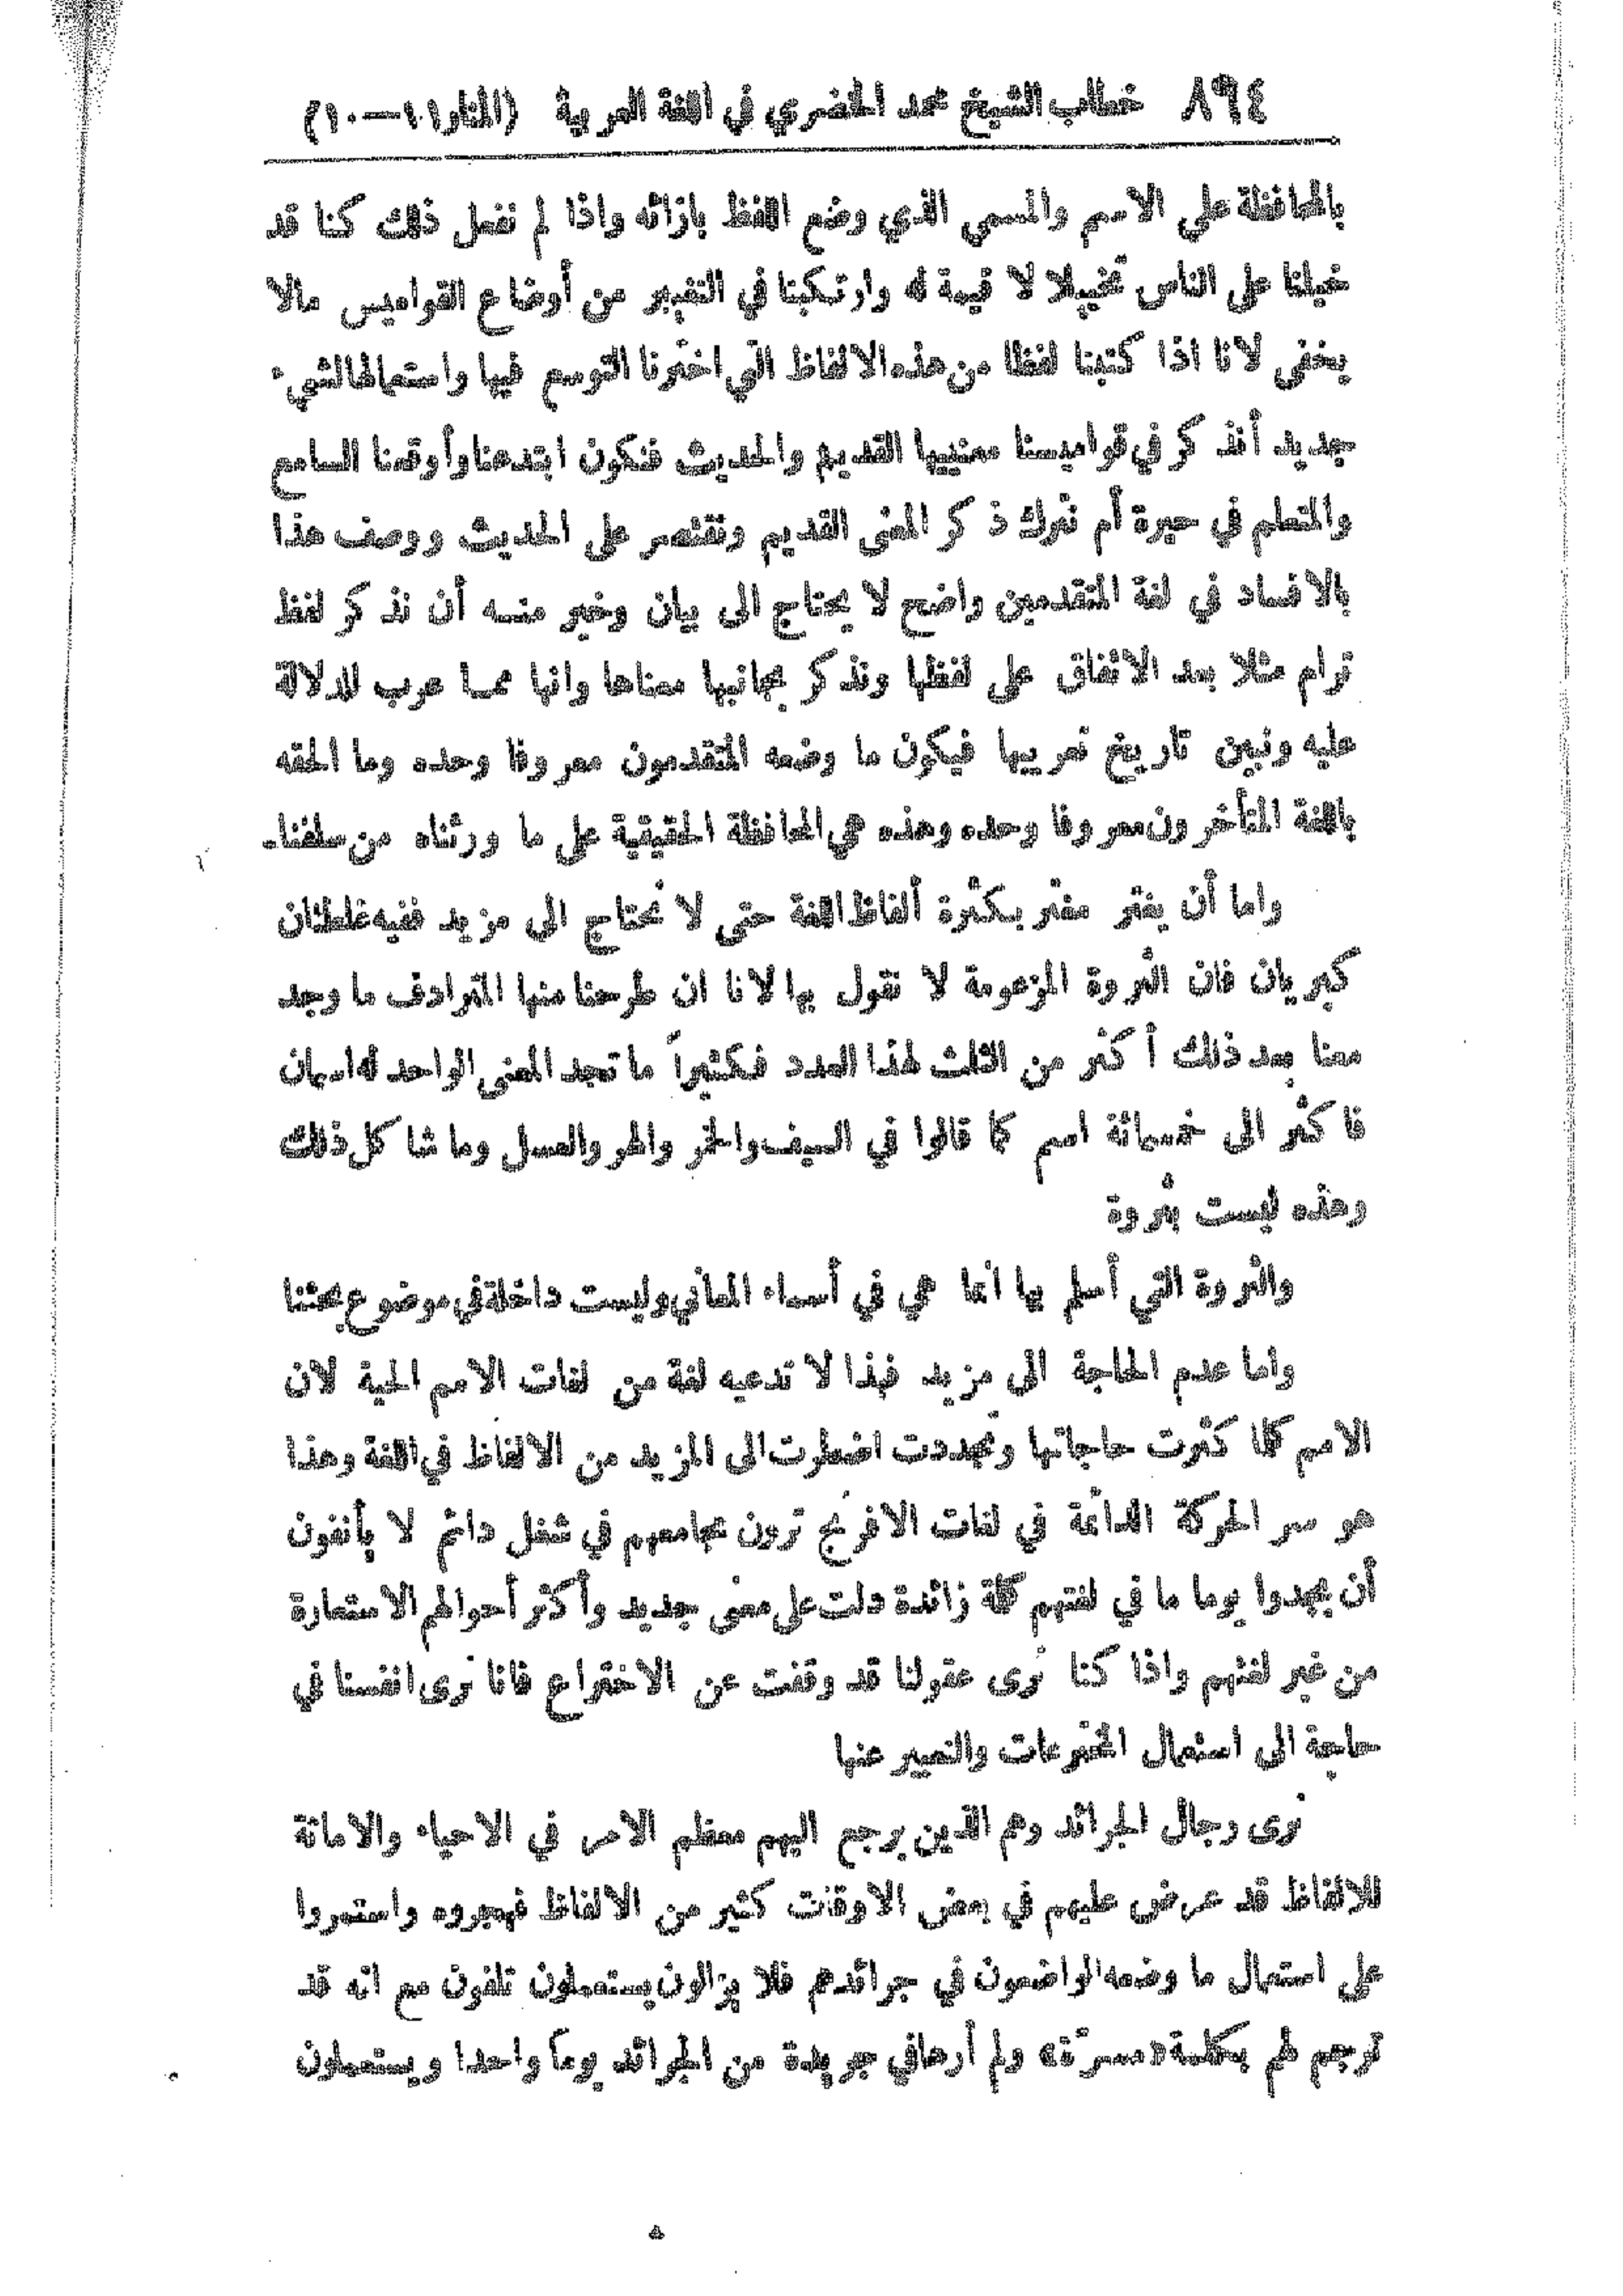 ٨٩٤ خطاب الشيخ محمد الخضري في اللغة العربية (المنار ١١—١٠)
بالمحافظة على الاسم والمسمى الذي وضع اللفظ بازائه واذا لم نفعل ذلك كنا قد
خيلنا على الناس تخييلا لا قيمة له وارتكبنا في التغيير من أوضاع القواميس مالا
يخفى لانا اذا كتبنا لفظا من هذه الالفاظ التي اخترنا التوسع فيها واستعمالها لشيء
جديد أنذكر في قواميسنا معنييها القديم والحديث فنكون ابتدعنا وأوقعنا السامع
والمتعلم في حيرة أم نترك ذكر المعنى القديم ونقتصر على الحديث ووصف هذا
بالافساد في لغة المتقدمين واضح لا يحتاج الى بيان وخير منه أن نذكر لفظ
ترام مثلا بعد الاتفاق على لفظها ونذكر بجانبها معناها وانها مما عرب للدلالة
عليه ونبين تاريخ تعريبها فيكون ما وضعه المتقدمون معروفا وحده وما الحقه
باللغة المتأخرون معروفا وحده وهذه هي المحافظة الحقيقية على ما ورثناه من سلفنا.
واما أن يغتر مغتر بكثرة ألفاظ اللغة حتى لا نحتاج الى مزيد ففيه غلطتان
كبريان فان الثروة المزعومة لا نقول بها لانا ان طرحنا منها المترادف ما وجد
معنا بعد ذلك أكثر من الثلث لهذا العدد فكثيراً ما تجد المعنى الواحد له اسمان
فاكثر الى خمسمائة اسم كما قالوا في السيف والخمر والهر والعسل وما شاكل ذلك
وهذه ليست بثروة
والثروة التي أسلم بها انما هي في أسماء المعاني وليست داخلة في موضوع بحثنا
واما عدم الحاجة الى مزيد فهذا لا تدعيه لغة من لغات الامم الحية لان
الامم كلما كثرت حاجاتها وتجددت اضطرت الى المزيد من الالفاظ في اللغة وهذا
هو سر الحركة الدائمة في لغات الافرنج ترون مجامعهم في شغل دائم لا يأنفون
أن يجدوا يوما ما في لغتهم كلمة زائدة دلت على معنى جديد وأكثر أحوالهم الاستعارة
من غير لغتهم واذا كنا نرى عقولنا قد وقفت عن الاختراع فانا نرى انفسنا في
حاجة الى استعمال المخترعات والتعبير عنها
نرى رجال الجرائد وهم الذين يرجع اليهم معظم الامر في الاحياء والاماتة
للالفاظ قد عرض عليهم في بعض الاوقات كثير من الالفاظ فهجروه واستمروا
على استعمال ما وضعه الواضعون في جرائدهم فلا يزالون يستعملون تلفون مع انه قد
ترجم لهم بكلمة «مسرّة» ولم أرها في جريدة من الجرائد يوماً واحدا ويستعملون